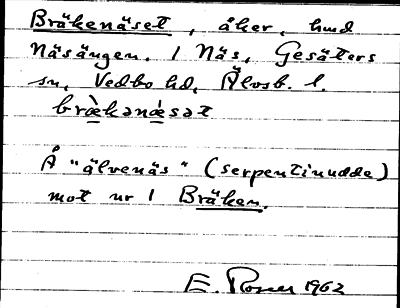 Bräkenäset, åker, hmd
Näsängen. 1 Näs, Gesäters
sn, Vedbo hd, Älvsb. l.
brækənæsət
Å "älvenäs" (serpentinudde)
mot nr 1 Bräken.
E. Rosner 1962